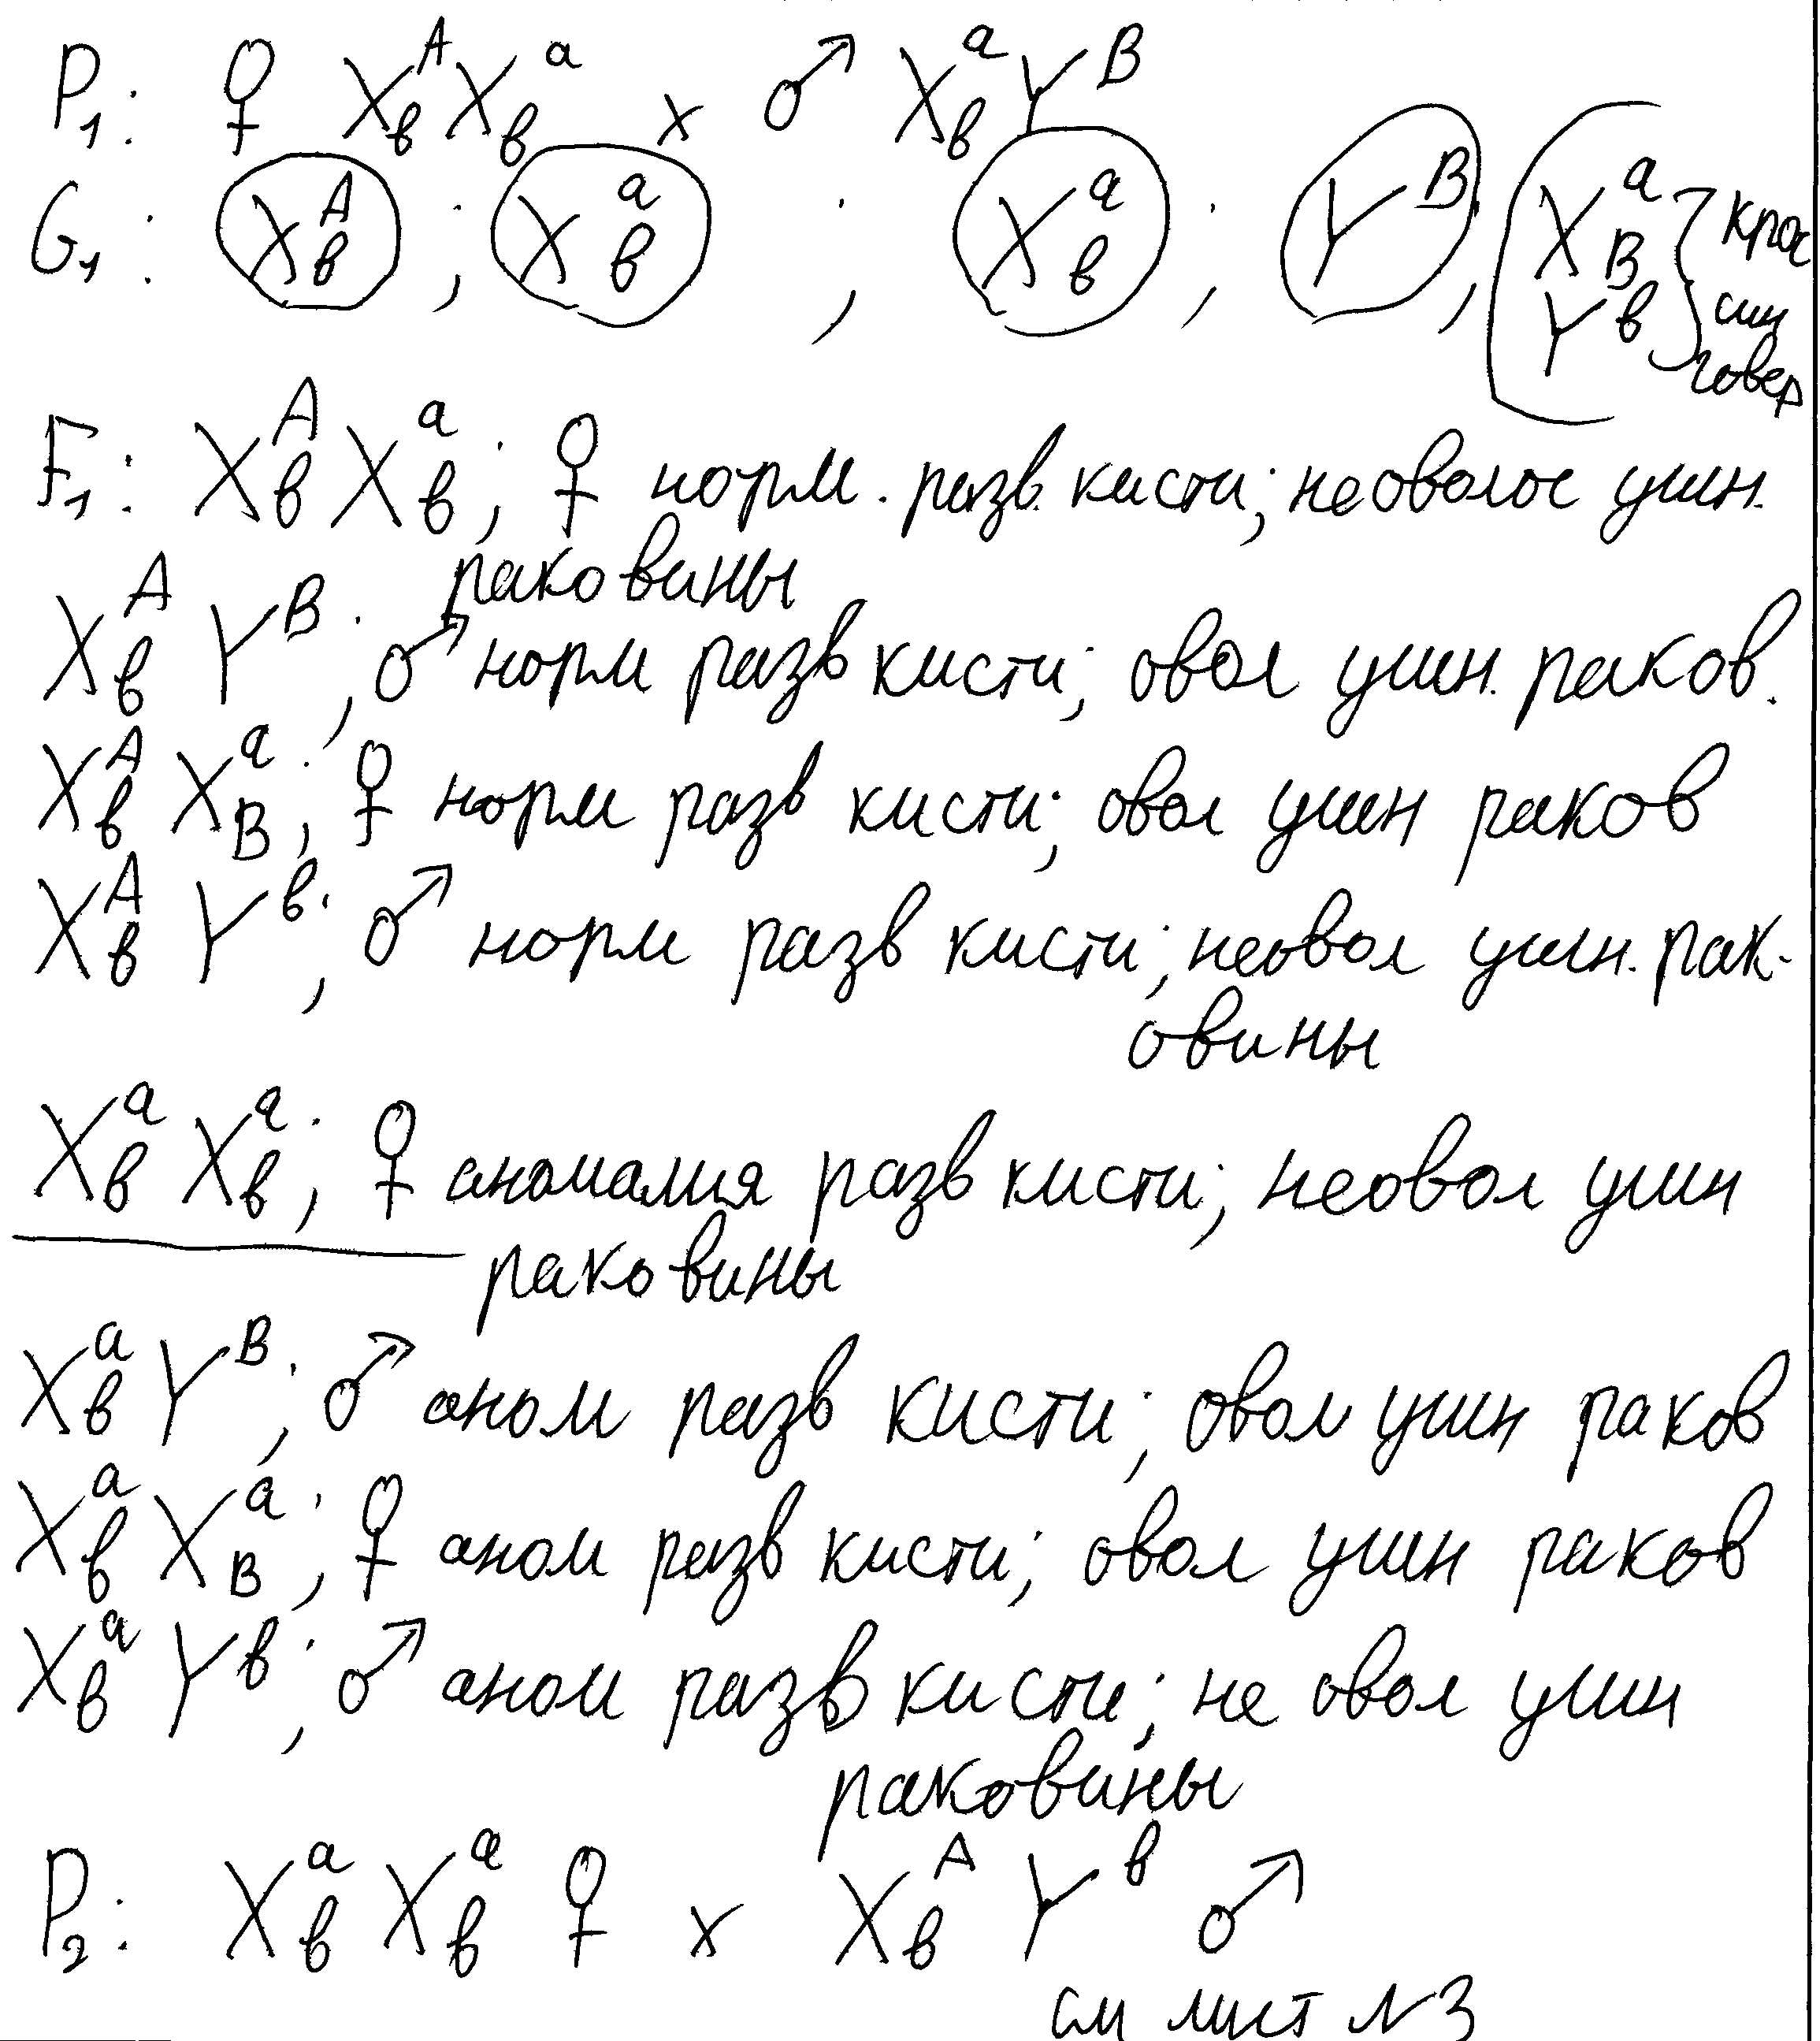 P₁: ♀ Xᴬв Xᵃв x ♂ Xᵃв Yᴮ
G₁: Xᴬв ; Xᵃв ; Xᵃв ; Yᴮ, Xᵃв Yᵇ
F₁: Xᴬв Xᵃв; ♀ норм. разв. кисти; неоволос ушн.
раковины
Xᴬв Yᴮ; ♂ норм разв кисти; овол ушн. раков.
Xᴬв XᵃB; ♀ норм разв кисти; овол ушн раков
Xᴬв Yᵇ; ♂ норм разв кисти; неовол ушн. рак-
овины
Xᵃв Xᵃв; ♀ аномалия разв кисти; неовол ушн
раковины
Xᵃв Yᴮ; ♂ аном разв кисти; овол ушн раков
Xᵃв XᵃB; ♀ аном разв кисти; овол ушн раков
Xᵃв Yᵇ; ♂ аном разв кисти; не овол ушн
раковины
P₂: Xᵃв Xᵃв ♀ x Xᴬв Yᵇ ♂
см лист №3